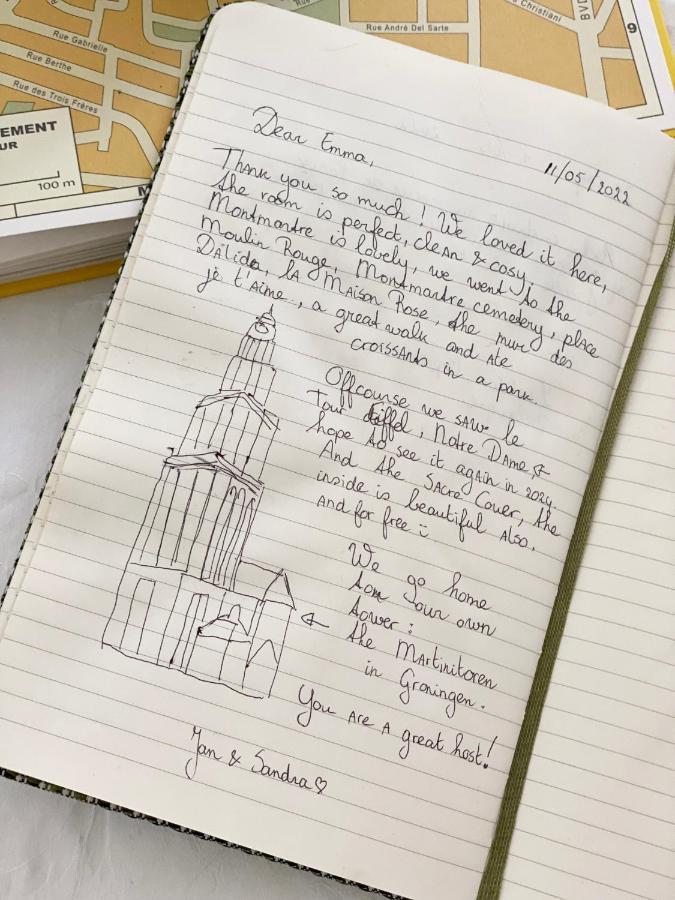 Rue Gabrielle
Rue Berthe
Rue des Trois Frères
EMENT
UR
100 m
M
Rue André Del Sarte
Christiani
BVD
9
Dear Emma,
11/05/2022
Thank you so much! We loved it here,
the room is perfect, clean & cosy.
Montmartre is lovely, we went to the
Moulin Rouge, Montmartre cemetery, place
Dalida, la Maison Rose, the mur des
je t'aime, a great walk and ate
croissants in a park.
Offcourse we saw le
Tour Eiffel, Notre Dame &
hope to see it again in 2024.
And the Sacre Couer, the
inside is beautiful also.
and for free :
We go home
to our own
tower:
the Martinitoren
in Groningen.
You are a great host!
Jan & Sandra ♡